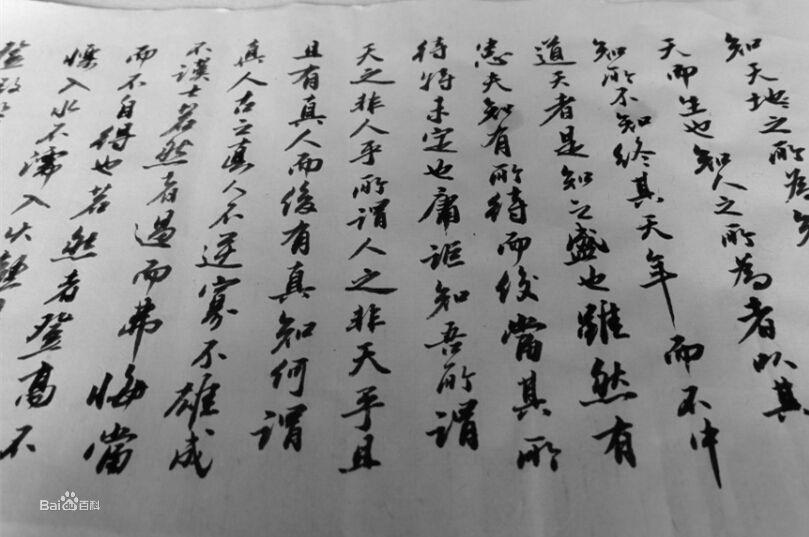 知天地之所為
天而生也知人之所為者以其
知所不知終其天年而不中
道天者是知之盛也雖然有
患夫知有所待而後當其所
待特未定也庸詎知吾所謂
天之非人乎所謂人之非天乎且
且有真人而後有真知何謂
真人古之真人不逆寡不雄成
不謨士若然者過而弗悔當
而不自得也若然者登高不
慄入水不濡入火
Baidu百科